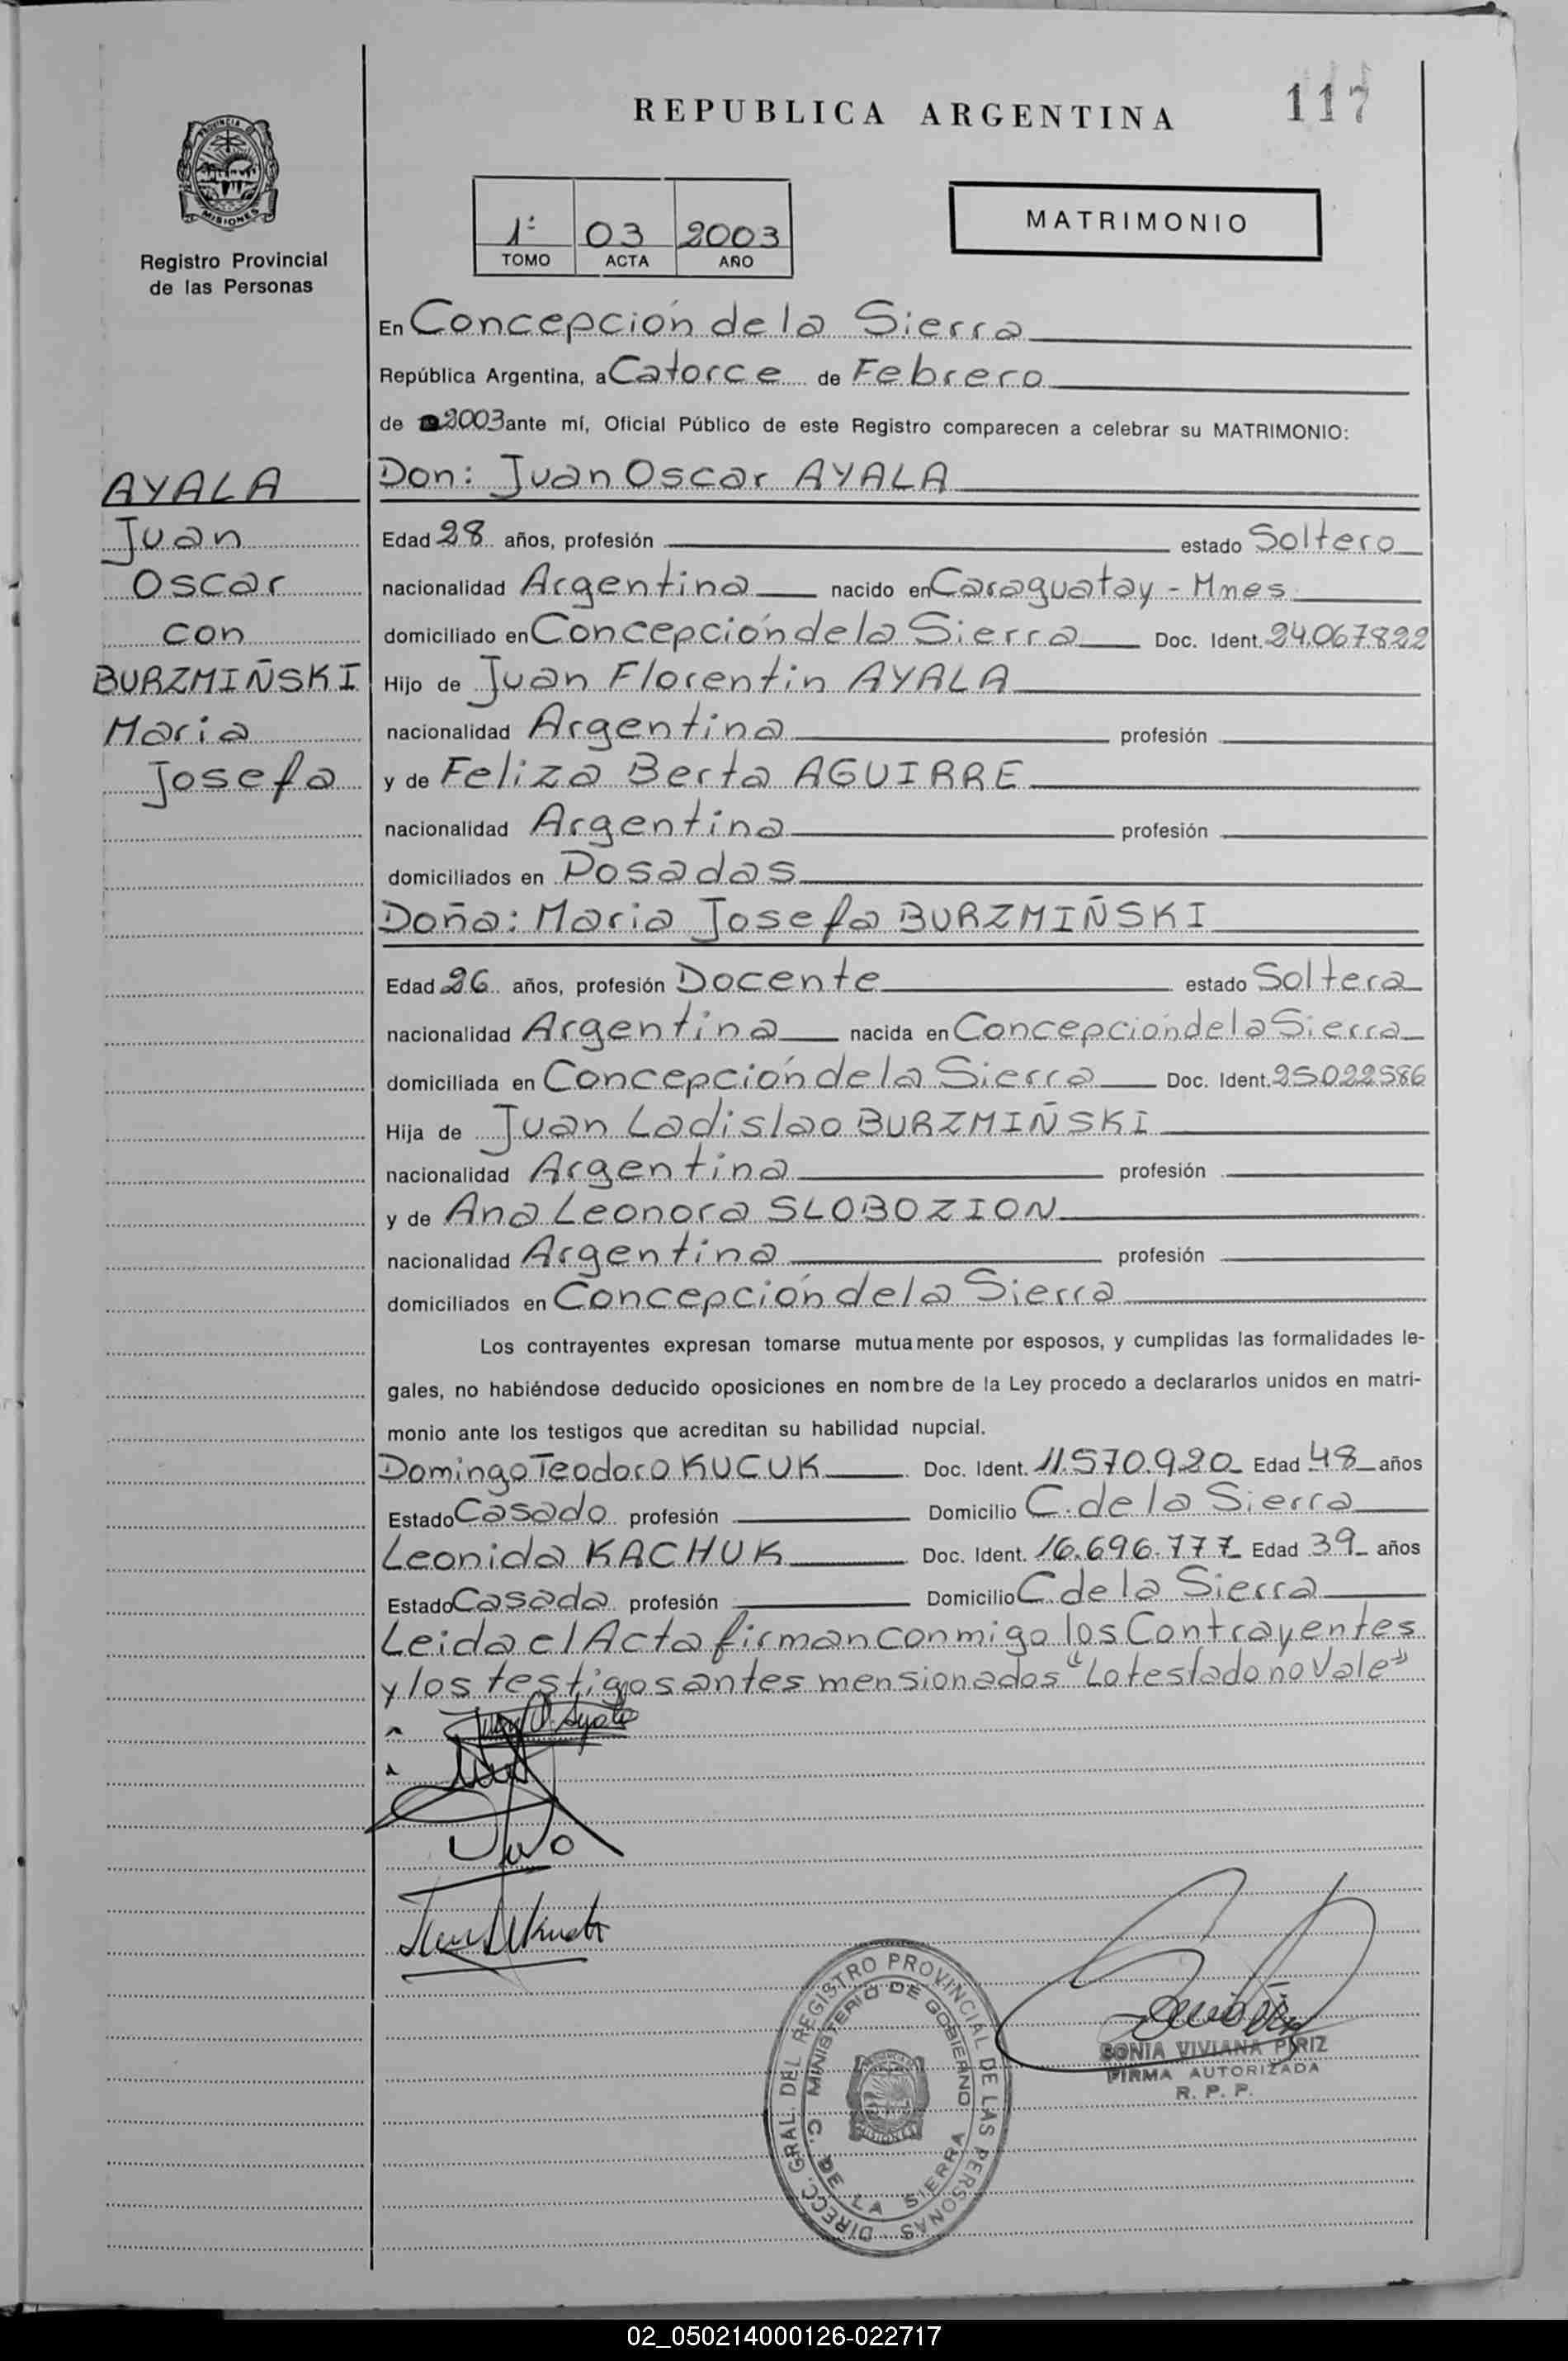 REPUBLICA ARGENTINA
117
PROVINCIA DE
MISIONES
Registro Provincial
de las Personas
1º 03 2003
TOMO ACTA AÑO
MATRIMONIO
En Concepción de la Sierra
República Argentina, a Catorce de Febrero
de 2003 ante mí, Oficial Público de este Registro comparecen a celebrar su MATRIMONIO:
AYALA
Juan
Oscar
con
BURZMIÑSKI
Maria
Josefa
Don: Juan Oscar AYALA
Edad 28 años, profesión estado Soltero
nacionalidad Argentina nacido en Caraguatay - Mnes
domiciliado en Concepción de la Sierra Doc. Ident. 24.067.822
Hijo de Juan Florentin AYALA
nacionalidad Argentina profesión
y de Feliza Berta AGUIRRE
nacionalidad Argentina profesión
domiciliados en Posadas
Doña: Maria Josefa BURZMIÑSKI
Edad 26 años, profesión Docente estado Soltera
nacionalidad Argentina nacida en Concepción de la Sierra
domiciliada en Concepción de la Sierra Doc. Ident. 25022586
Hija de Juan Ladislao BURZMIÑSKI
nacionalidad Argentina profesión
y de Ana Leonora SLOBOZION
nacionalidad Argentina profesión
domiciliados en Concepción de la Sierra
Los contrayentes expresan tomarse mutuamente por esposos, y cumplidas las formalidades le-
gales, no habiéndose deducido oposiciones en nombre de la Ley procedo a declararlos unidos en matri-
monio ante los testigos que acreditan su habilidad nupcial.
Domingo Teodoro KUCUK Doc. Ident. 11.570.920 Edad 48 años
Estado Casado profesión Domicilio C. de la Sierra
Leonida KACHUK Doc. Ident. 16.696.777 Edad 39 años
Estado Casada profesión Domicilio C. de la Sierra
Leida el Acta firman conmigo los Contrayentes
y los testigos antes mensionados "Lo testado no Vale"
Juan O. Ayala
DIRECC. GRAL. DEL REGISTRO PROVINCIAL DE LAS PERSONAS
MINISTERIO DE GOBIERNO
C. DE LA SIERRA
SONIA VIVIANA PIRIZ
FIRMA AUTORIZADA
R. P. P.
02_050214000126-022717